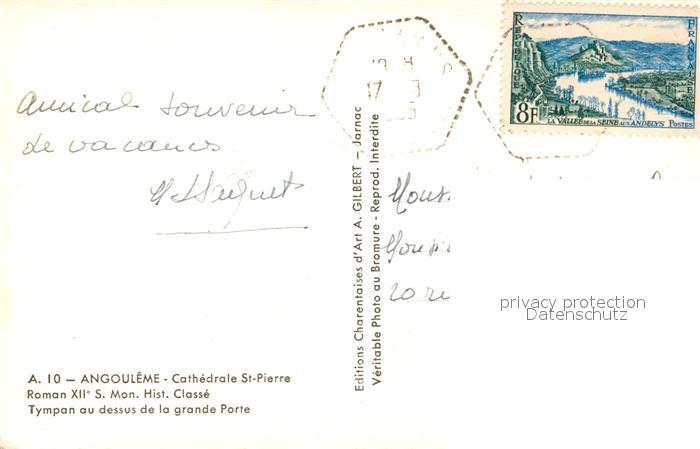 RÉPUBLIQUE
FRANÇAISE
8F
LA VALLÉE DE LA SEINE AUX ANDELYS POSTES
17 - 3
Amical souvenir
de vacances
Editions Charentaises d'Art A. GILBERT — Jarnac
Véritable Photo au Bromure - Reprod. Interdite
privacy protection
Datenschutz
A. 10 — ANGOULÊME - Cathédrale St-Pierre
Roman XII° S. Mon. Hist. Classé
Tympan au dessus de la grande Porte